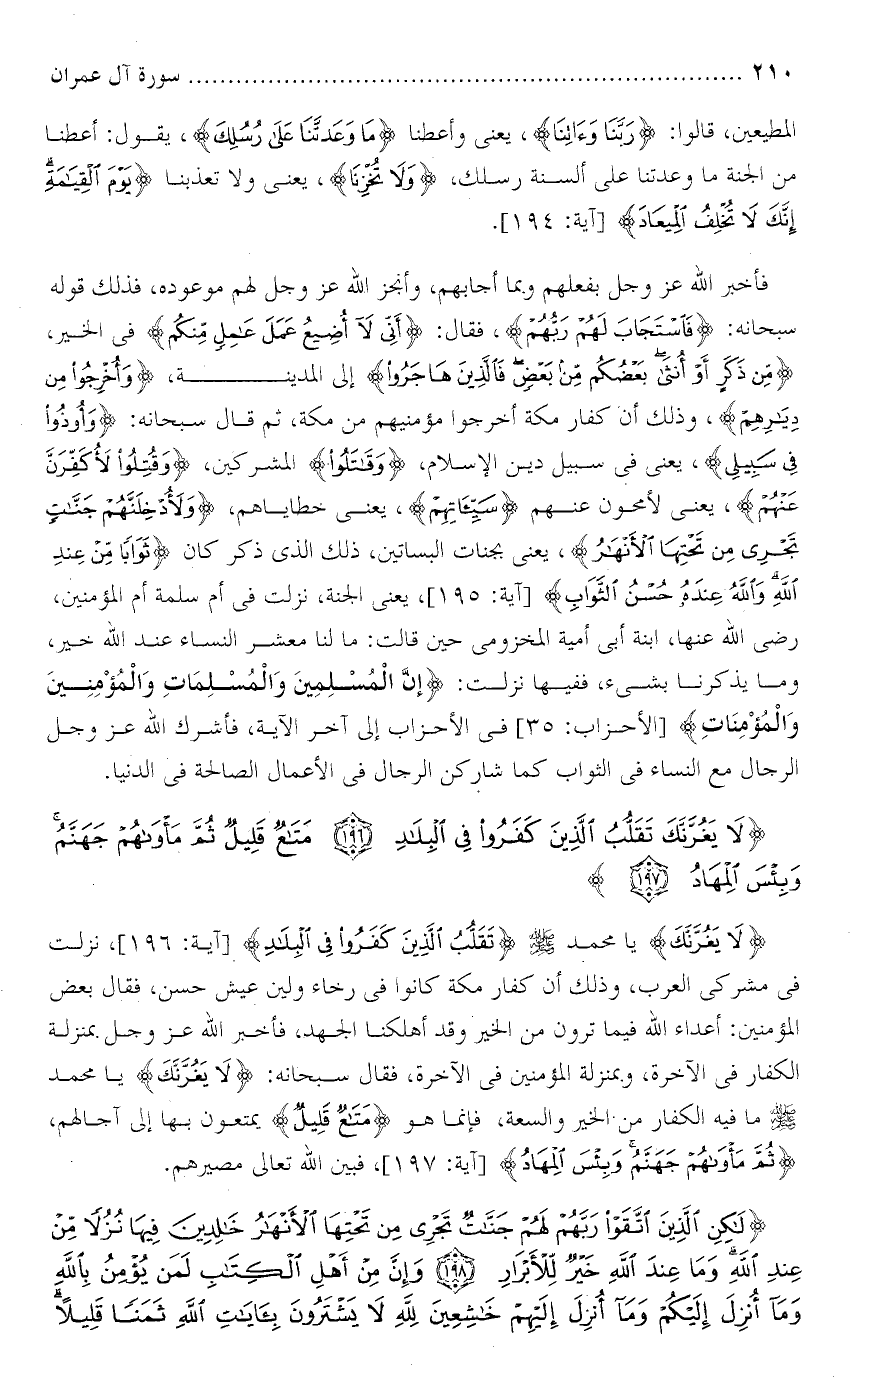 ٢١٠ ........................................................................ سورة آل عمران
المطيعين، قالوا: ﴿رَبَّنَا وَءَاتِنَا﴾، يعنى وأعطنا ﴿مَا وَعَدتَّنَا عَلَىٰ رُسُلِكَ﴾، يقول: أعطنا
من الجنة ما وعدتنا على ألسنة رسلك، ﴿وَلَا تُخْزِنَا﴾، يعنى ولا تعذبنا ﴿يَوْمَ ٱلْقِيَٰمَةِۗ
إِنَّكَ لَا تُخْلِفُ ٱلْمِيعَادَ﴾ [آية: ١٩٤].
فأخبر الله عز وجل بفعلهم وبما أجابهم، وأنجز الله عز وجل لهم موعوده، فذلك قوله
سبحانه: ﴿فَٱسْتَجَابَ لَهُمْ رَبُّهُمْ﴾، فقال: ﴿أَنِّى لَآ أُضِيعُ عَمَلَ عَٰمِلٍ مِّنكُم﴾ فى الخير،
﴿مِّن ذَكَرٍ أَوْ أُنثَىٰۖ بَعْضُكُم مِّنۢ بَعْضٍۖ فَٱلَّذِينَ هَاجَرُوا۟﴾ إلى المدينة، ﴿وَأُخْرِجُوا۟ مِن
دِيَٰرِهِمْ﴾، وذلك أن كفار مكة أخرجوا مؤمنيهم من مكة، ثم قال سبحانه: ﴿وَأُوذُوا۟
فِى سَبِيلِى﴾، يعنى فى سبيل دين الإسلام، ﴿وَقَٰتَلُوا۟﴾ المشركين، ﴿وَقُتِلُوا۟ لَأُكَفِّرَنَّ
عَنْهُمْ﴾، يعنى لأمحون عنهم ﴿سَيِّـَٔاتِهِمْ﴾، يعنى خطاياهم، ﴿وَلَأُدْخِلَنَّهُمْ جَنَّٰتٍ
تَجْرِى مِن تَحْتِهَا ٱلْأَنْهَٰرُ﴾، يعنى بجنات البساتين، ذلك الذى ذكر كان ﴿ثَوَابًا مِّنْ عِندِ
ٱللَّهِۗ وَٱللَّهُ عِندَهُۥ حُسْنُ ٱلثَّوَابِ﴾ [آية: ١٩٥]، يعنى الجنة، نزلت فى أم سلمة أم المؤمنين،
رضى الله عنها، ابنة أبى أمية المخزومى حين قالت: ما لنا معشر النساء عند الله خير،
وما يذكرنا بشىء، ففيها نزلت: ﴿إِنَّ الْمُسْلِمِينَ وَالْمُسْلِمَاتِ وَالْمُؤْمِنِينَ
وَالْمُؤْمِنَاتِ﴾ [الأحزاب: ٣٥] فى الأحزاب إلى آخر الآية، فأشرك الله عز وجل
الرجال مع النساء فى الثواب كما شاركن الرجال فى الأعمال الصالحة فى الدنيا.
﴿لَا يَغُرَّنَّكَ تَقَلُّبُ ٱلَّذِينَ كَفَرُوا۟ فِى ٱلْبِلَٰدِ ١٩٦ مَتَٰعٌ قَلِيلٌ ثُمَّ مَأْوَىٰهُمْ جَهَنَّمُۚ
وَبِئْسَ ٱلْمِهَادُ ١٩٧ ﴾
﴿لَا يَغُرَّنَّكَ﴾ يا محمد ﷺ ﴿تَقَلُّبُ ٱلَّذِينَ كَفَرُوا۟ فِى ٱلْبِلَٰدِ﴾ [آية: ١٩٦]، نزلت
فى مشركى العرب، وذلك أن كفار مكة كانوا فى رخاء ولين عيش حسن، فقال بعض
المؤمنين: أعداء الله فيما ترون من الخير وقد أهلكنا الجهد، فأخبر الله عز وجل بمنزلة
الكفار فى الآخرة، وبمنزلة المؤمنين فى الآخرة، فقال سبحانه: ﴿لَا يَغُرَّنَّكَ﴾ يا محمد
ﷺ ما فيه الكفار من الخير والسعة، فإنما هو ﴿مَتَٰعٌ قَلِيلٌ﴾ يمتعون بها إلى آجالهم،
﴿ثُمَّ مَأْوَىٰهُمْ جَهَنَّمُۚ وَبِئْسَ ٱلْمِهَادُ﴾ [آية: ١٩٧]، فبين الله تعالى مصيرهم.
﴿لَٰكِنِ ٱلَّذِينَ ٱتَّقَوْا۟ رَبَّهُمْ لَهُمْ جَنَّٰتٌ تَجْرِى مِن تَحْتِهَا ٱلْأَنْهَٰرُ خَٰلِدِينَ فِيهَا نُزُلًا مِّنْ
عِندِ ٱللَّهِۗ وَمَا عِندَ ٱللَّهِ خَيْرٌ لِّلْأَبْرَارِ ١٩٨ وَإِنَّ مِنْ أَهْلِ ٱلْكِتَٰبِ لَمَن يُؤْمِنُ بِٱللَّهِ
وَمَآ أُنزِلَ إِلَيْكُمْ وَمَآ أُنزِلَ إِلَيْهِمْ خَٰشِعِينَ لِلَّهِ لَا يَشْتَرُونَ بِـَٔايَٰتِ ٱللَّهِ ثَمَنًا قَلِيلًاۗ